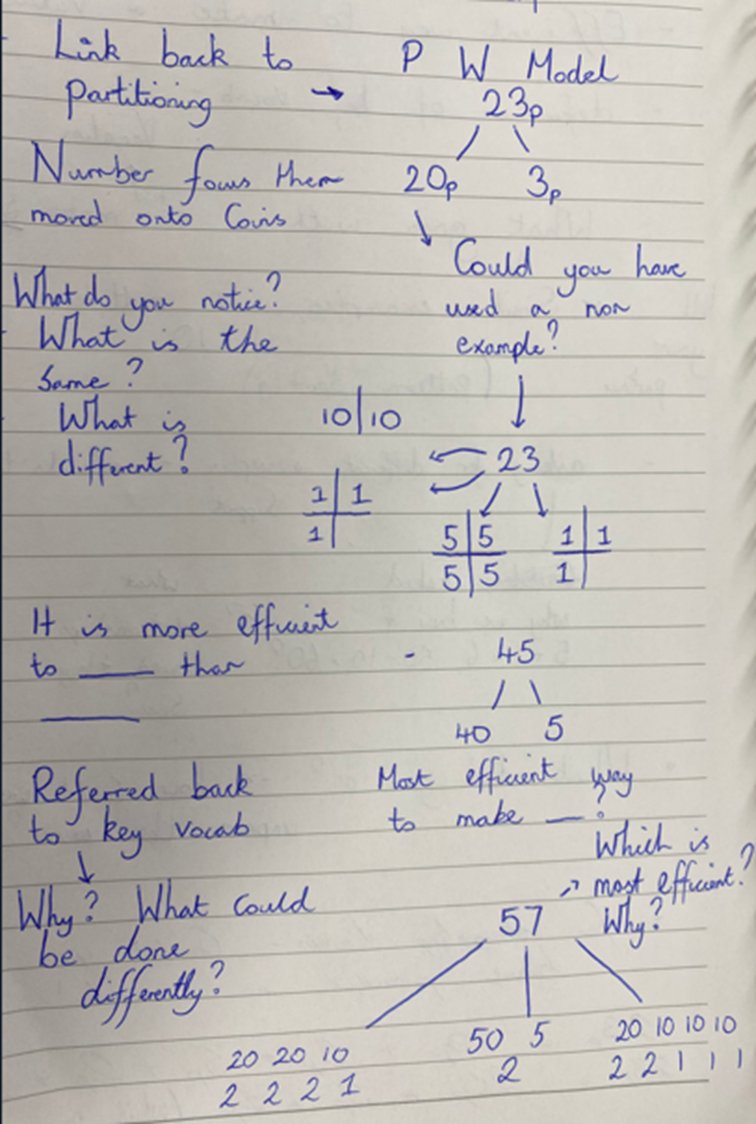 Link back to
partitioning →
P W Model
23p
20p 3p
Number focus then
moved onto Coins
Could you have
used a non
example?
What do you notice?
What is the
same?
What is
different?
23
10|10
1|1
1|
5|5
5|5
1|1
1|
It is more efficient
to ___ than
___
- 45
40 5
Referred back
to key vocab
Why? What Could
be done
differently?
Most efficient way
to make ___?
Which is
most efficient?
Why?
57
20 20 10
2 2 2 1
50 5
2
20 10 10 10
2 2 1 1 1